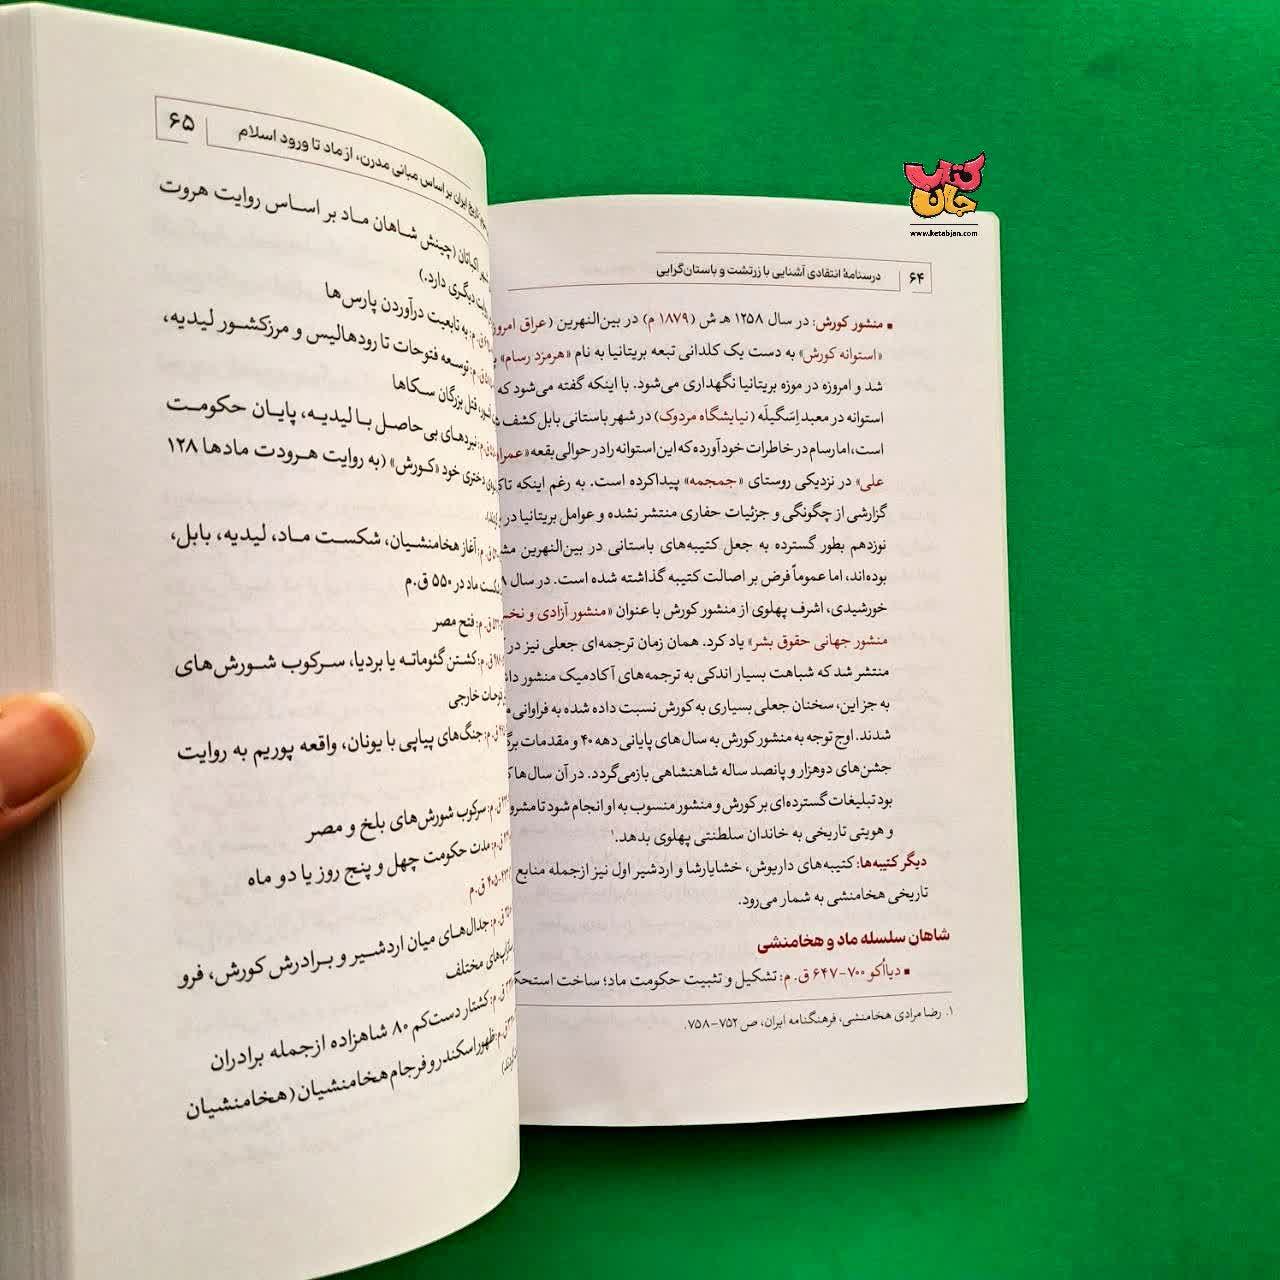 کتاب جان
www.ketabjan.com
۶۴ درسنامهٔ انتقادی آشنایی با زرتشت و باستان‌گرایی
▪ منشور کورش: در سال ۱۲۵۸ هـ ش (۱۸۷۹ م) در بین‌النهرین (عراق امروز
«استوانه کورش» به دست یک کلدانی تبعه بریتانیا به نام «هرمزد رسام»
شد و امروزه در موزه بریتانیا نگهداری می‌شود. با اینکه گفته می‌شود که
استوانه در معبد اِسَگیلَه (نیایشگاه مردوک) در شهر باستانی بابل کشف
است، اما رسام در خاطرات خود آورده که این استوانه را در حوالی بقعه «عمران
علی» در نزدیکی روستای «جمجمه» پیدا کرده است. به رغم اینکه
گزارشی از چگونگی و جزئیات حفاری منتشر نشده و عوامل بریتانیا در
نوزدهم بطور گسترده به جعل کتیبه‌های باستانی در بین‌النهرین
بوده‌اند، اما عموماً فرض بر اصالت کتیبه گذاشته شده است. در سال
خورشیدی، اشرف پهلوی از منشور کورش با عنوان «منشور آزادی و
منشور جهانی حقوق بشر» یاد کرد. همان زمان ترجمه‌ای جعلی نیز در
منتشر شد که شباهت بسیار اندکی به ترجمه‌های آکادمیک منشور
به جز این، سخنان جعلی بسیاری به کورش نسبت داده شده به فراوانی
شدند. اوج توجه به منشور کورش به سال‌های پایانی دهه ۴۰ و مقدمات
جشن‌های دوهزار و پانصد ساله شاهنشاهی بازمی‌گردد. در آن سال‌ها
بود تبلیغات گسترده‌ای بر کورش و منشور منسوب به او انجام شود تا
و هویتی تاریخی به خاندان سلطنتی پهلوی بدهد.۱
دیگر کتیبه‌ها: کتیبه‌های داریوش، خشایارشا و اردشیر اول نیز ازجمله منابع
تاریخی هخامنشی به شمار می‌رود.
شاهان سلسله ماد و هخامنشی
▪ دیااُکو ۷۰۰-۶۴۷ ق. م: تشکیل و تثبیت حکومت ماد؛ ساخت
۱. رضا مرادی هخامنشی، فرهنگنامه ایران، ص ۷۵۲-۷۵۸.
تاریخ ایران بر اساس مبانی مدرن، از ماد تا ورود اسلام ۶۵
اکباتان (چینش شاهان ماد بر اساس روایت هروت
دیگری دارد.)
به تابعیت درآوردن پارس‌ها
توسعه فتوحات تا رودهالیس و مرز کشور لیدیه،
قتل بزرگان سکاها
نبردهای بی‌حاصل با لیدیه، پایان حکومت
دختری خود «کورش» (به روایت هرودت مادها ۱۲۸
آغاز هخامنشیان، شکست ماد، لیدیه، بابل،
شکست ماد در ۵۵۰ ق.م
فتح مصر
کشتن گئوماته یا بردیا، سرکوب شورش‌های
خارجی
جنگ‌های پیاپی با یونان، واقعه پوریم به روایت
سرکوب شورش‌های بلخ و مصر
مدت حکومت چهل و پنج روز یا دو ماه
۴۰۵ ق.م
جدال‌های میان اردشیر و برادرش کورش، فرو
های مختلف
کشتار دست‌کم ۸۰ شاهزاده ازجمله برادران
ظهور اسکندر و فرجام هخامنشیان (هخامنشیان